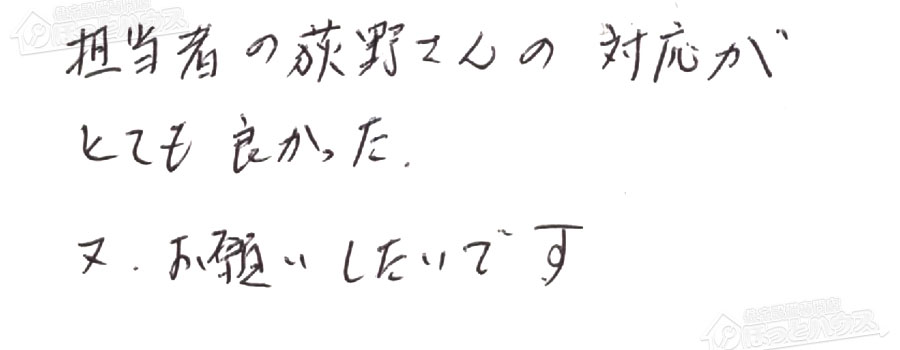 担当者の荻野さんの 対応が
とても 良かった.
又. お願いしたいです
ほっとハウス